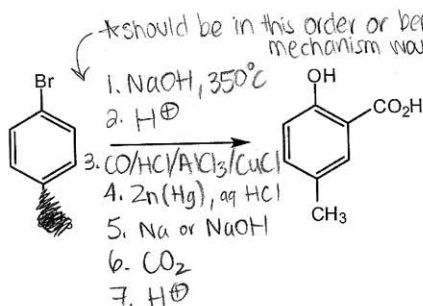 *should be in this order or ben
mechanism wou
Br
1. NaOH, 350°C
2. H⊕
3. CO/HCl/AlCl₃/CuCl
4. Zn(Hg), aq HCl
5. Na or NaOH
6. CO₂
7. H⊕
OH
CO₂H
CH₃